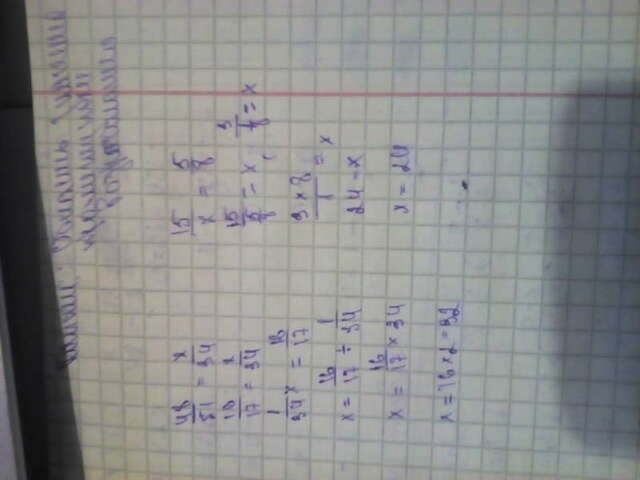 48/51 = x/34
16/17 = x/34
1/34 x = 16/17
x = 16/17 ÷ 1/34
x = 16/17 × 34
x = 16 × 2 = 32
15/x = 5/8
15/(5/8) = x, 3/(1/8) = x
3 × 8/1 = x
24 = x
x = 24